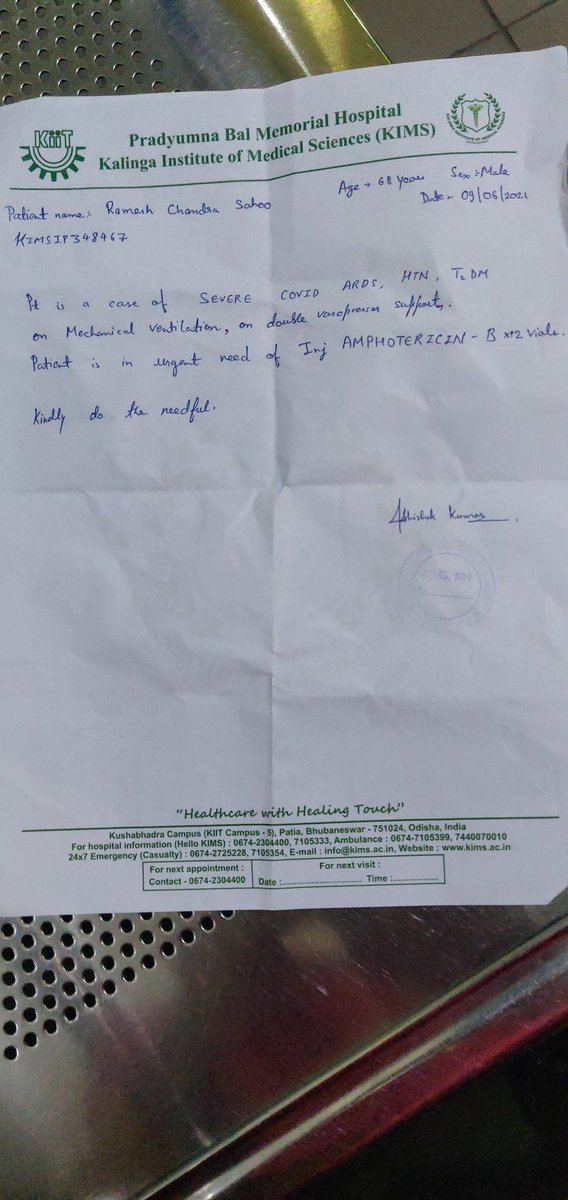 KiiT
Pradyumna Bal Memorial Hospital
Kalinga Institute of Medical Sciences (KIMS)
Age → 68 Years Sex :- Male
Patient name :- Ramesh Chandra Sahoo Date :- 09/06/2021
KIMSIP348467
Pt is a case of SEVERE COVID ARDS, HTN, T2DM
on Mechanical ventilation, on double vasopressor supports.
Patient is in urgent need of Inj AMPHOTERICIN - B x12 vials.
Kindly do the needful.
Abhishek Kumar
KIMS, KIIT
"Healthcare with Healing Touch"
Kushabhadra Campus (KIIT Campus - 5), Patia, Bhubaneswar - 751024, Odisha, India
For hospital information (Hello KIMS) : 0674-2304400, 7105333, Ambulance : 0674-7105399, 7440070010
24x7 Emergency (Casualty) : 0674-2725228, 7105354, E-mail : info@kims.ac.in, Website : www.kims.ac.in
For next appointment : For next visit :
Contact - 0674-2304400 Date :.............................. Time :.................